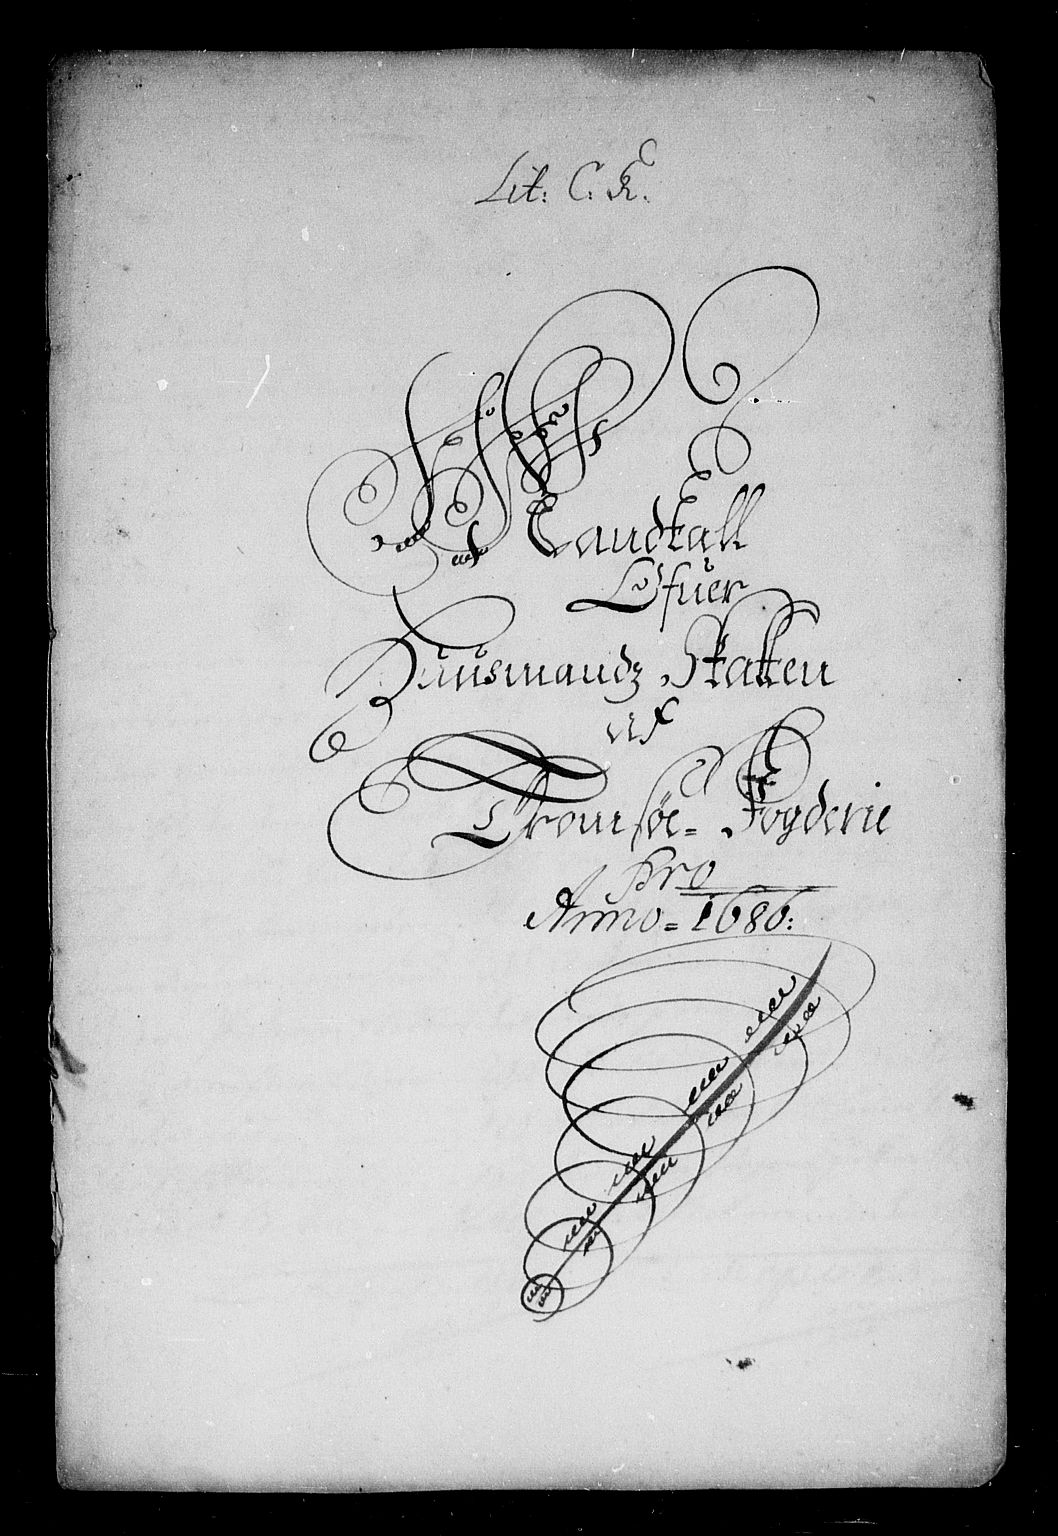 Lit: C. K.
Mandtall
Ofuer
Huusmandz Skatten
af
Tromsøe= Fogderie
pro
Anno= 1686: